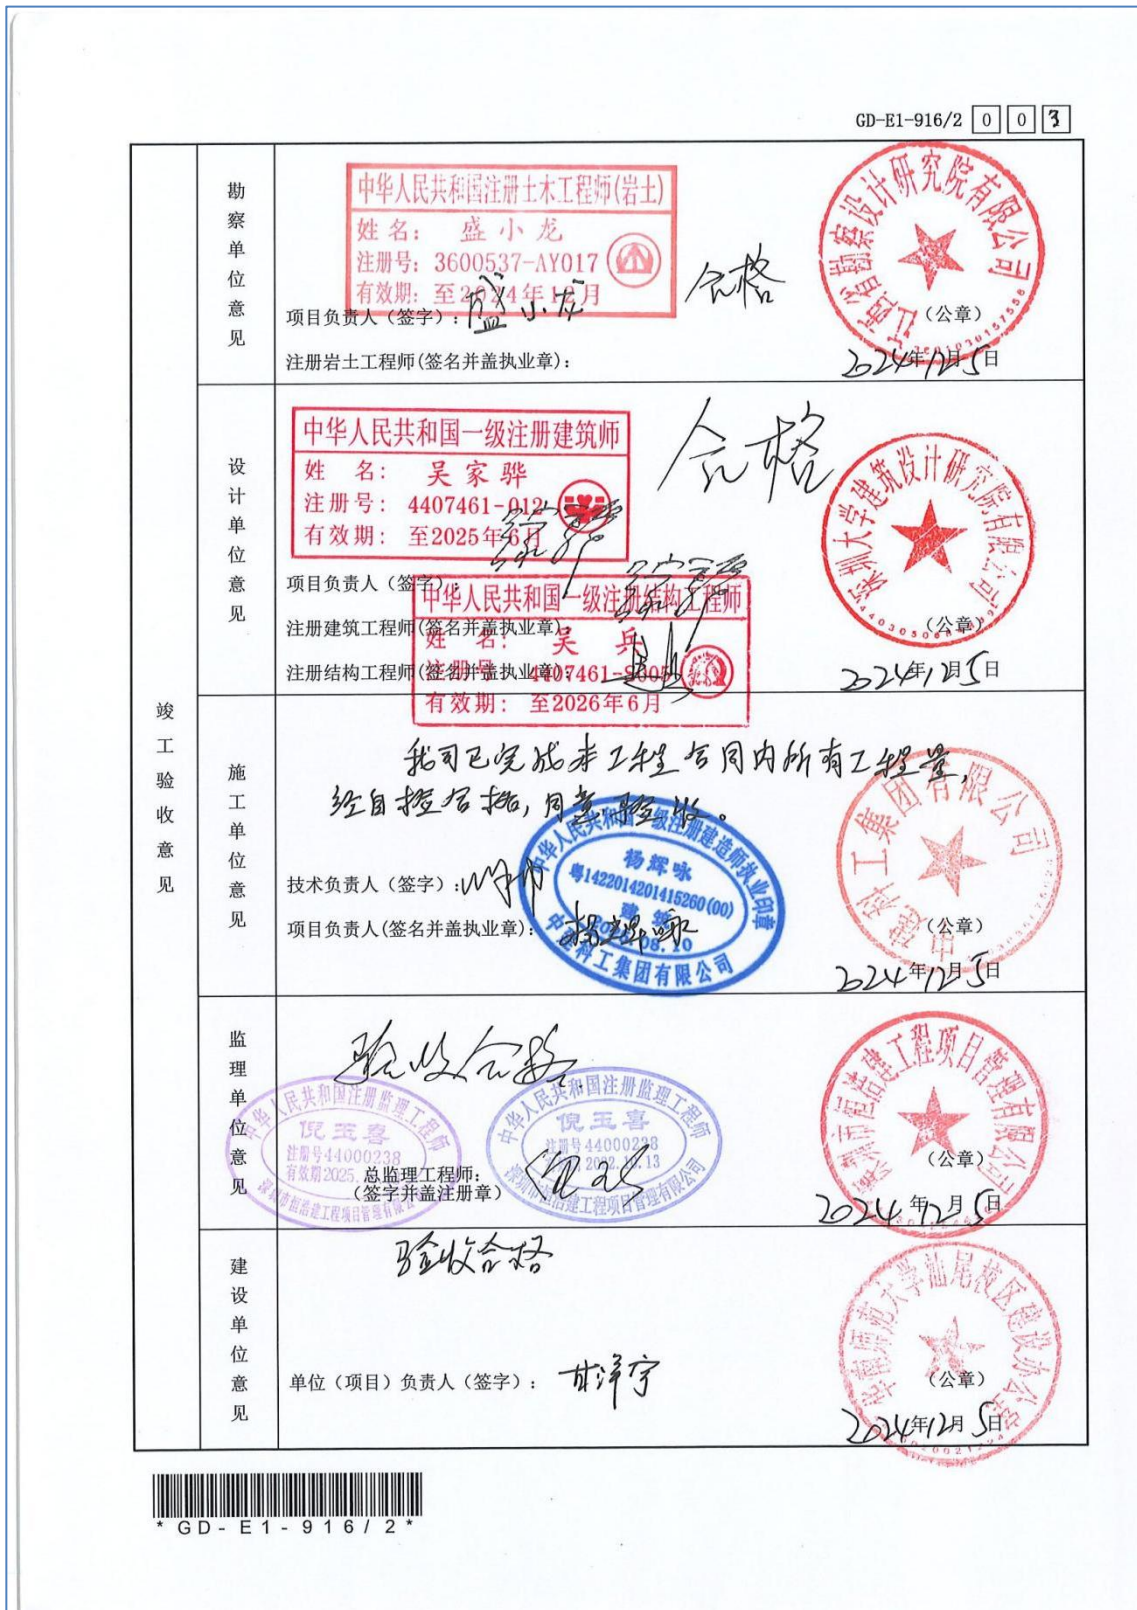 GD-E1-916/2 0 0 3
竣工验收意见
勘察单位意见
中华人民共和国注册土木工程师(岩土)
姓名: 盛小龙
注册号: 3600537-AY017
有效期: 至2024年12月
合格
项目负责人(签字): 盛小龙
注册岩土工程师(签名并盖执业章):
江西省勘察设计研究院有限公司
(公章)
2024年12月5日
设计单位意见
中华人民共和国一级注册建筑师
姓 名: 吴家骅
注册号: 4407461-012
有效期: 至2025年6月
合格
项目负责人(签字):
中华人民共和国一级注册结构工程师
姓 名: 吴兵
注册号: 4407461-S005
有效期: 至2026年6月
注册建筑工程师(签名并盖执业章):
注册结构工程师(签名并盖执业章):
深圳大学建筑设计研究院有限公司
(公章)
2024年12月5日
施工单位意见
我司已完成本工程合同内所有工程量,
经自检合格,同意验收。
中华人民共和国一级注册建造师执业印章
杨辉咏
粤1422014201415260(00)
建筑
中建科工集团有限公司
技术负责人(签字):
项目负责人(签名并盖执业章): 杨辉咏
中建科工集团有限公司
(公章)
2024年12月5日
监理单位意见
验收合格
中华人民共和国注册监理工程师
倪玉喜
注册号44000238
有效期2025.
深圳市恒浩建工程项目管理有限公司
中华人民共和国注册监理工程师
倪玉喜
注册号44000238
2022.10.13
深圳市恒浩建工程项目管理有限公司
总监理工程师:
(签字并盖注册章)
深圳市恒浩建工程项目管理有限公司
(公章)
2024年12月5日
建设单位意见
验收合格
单位(项目)负责人(签字): 甘泽宇
华南师范大学汕尾校区建设办公室
(公章)
2024年12月5日
*GD-E1-916/2*